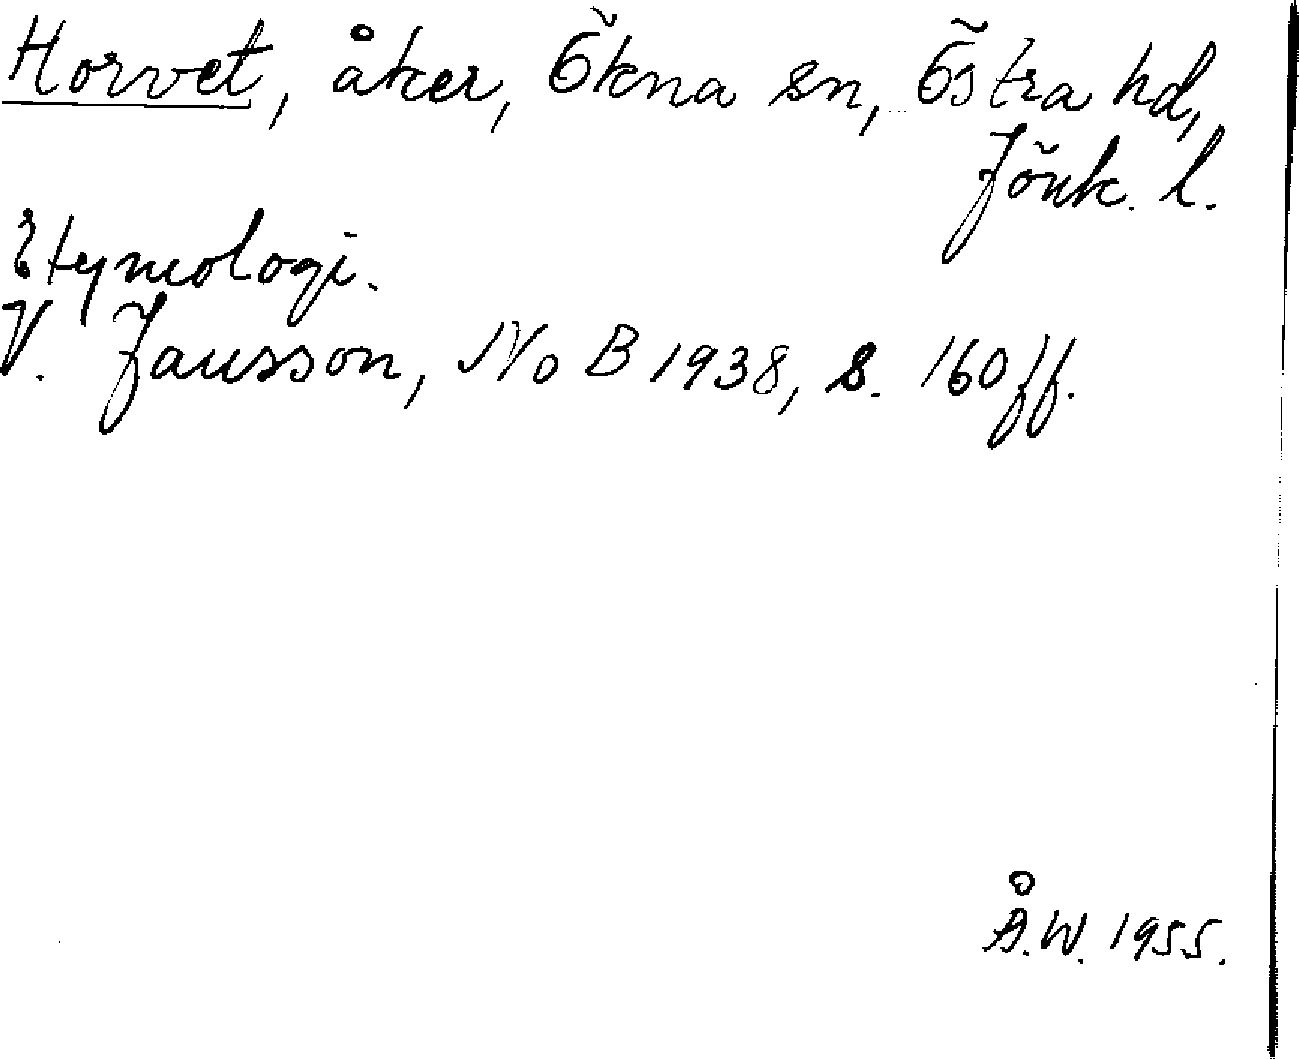 Horvet, åker, Ökna sn, Östra hd,
Jönk. l.
Etymologi.
V. Jansson, NoB 1938, s. 160 ff.
Å.W. 1955.